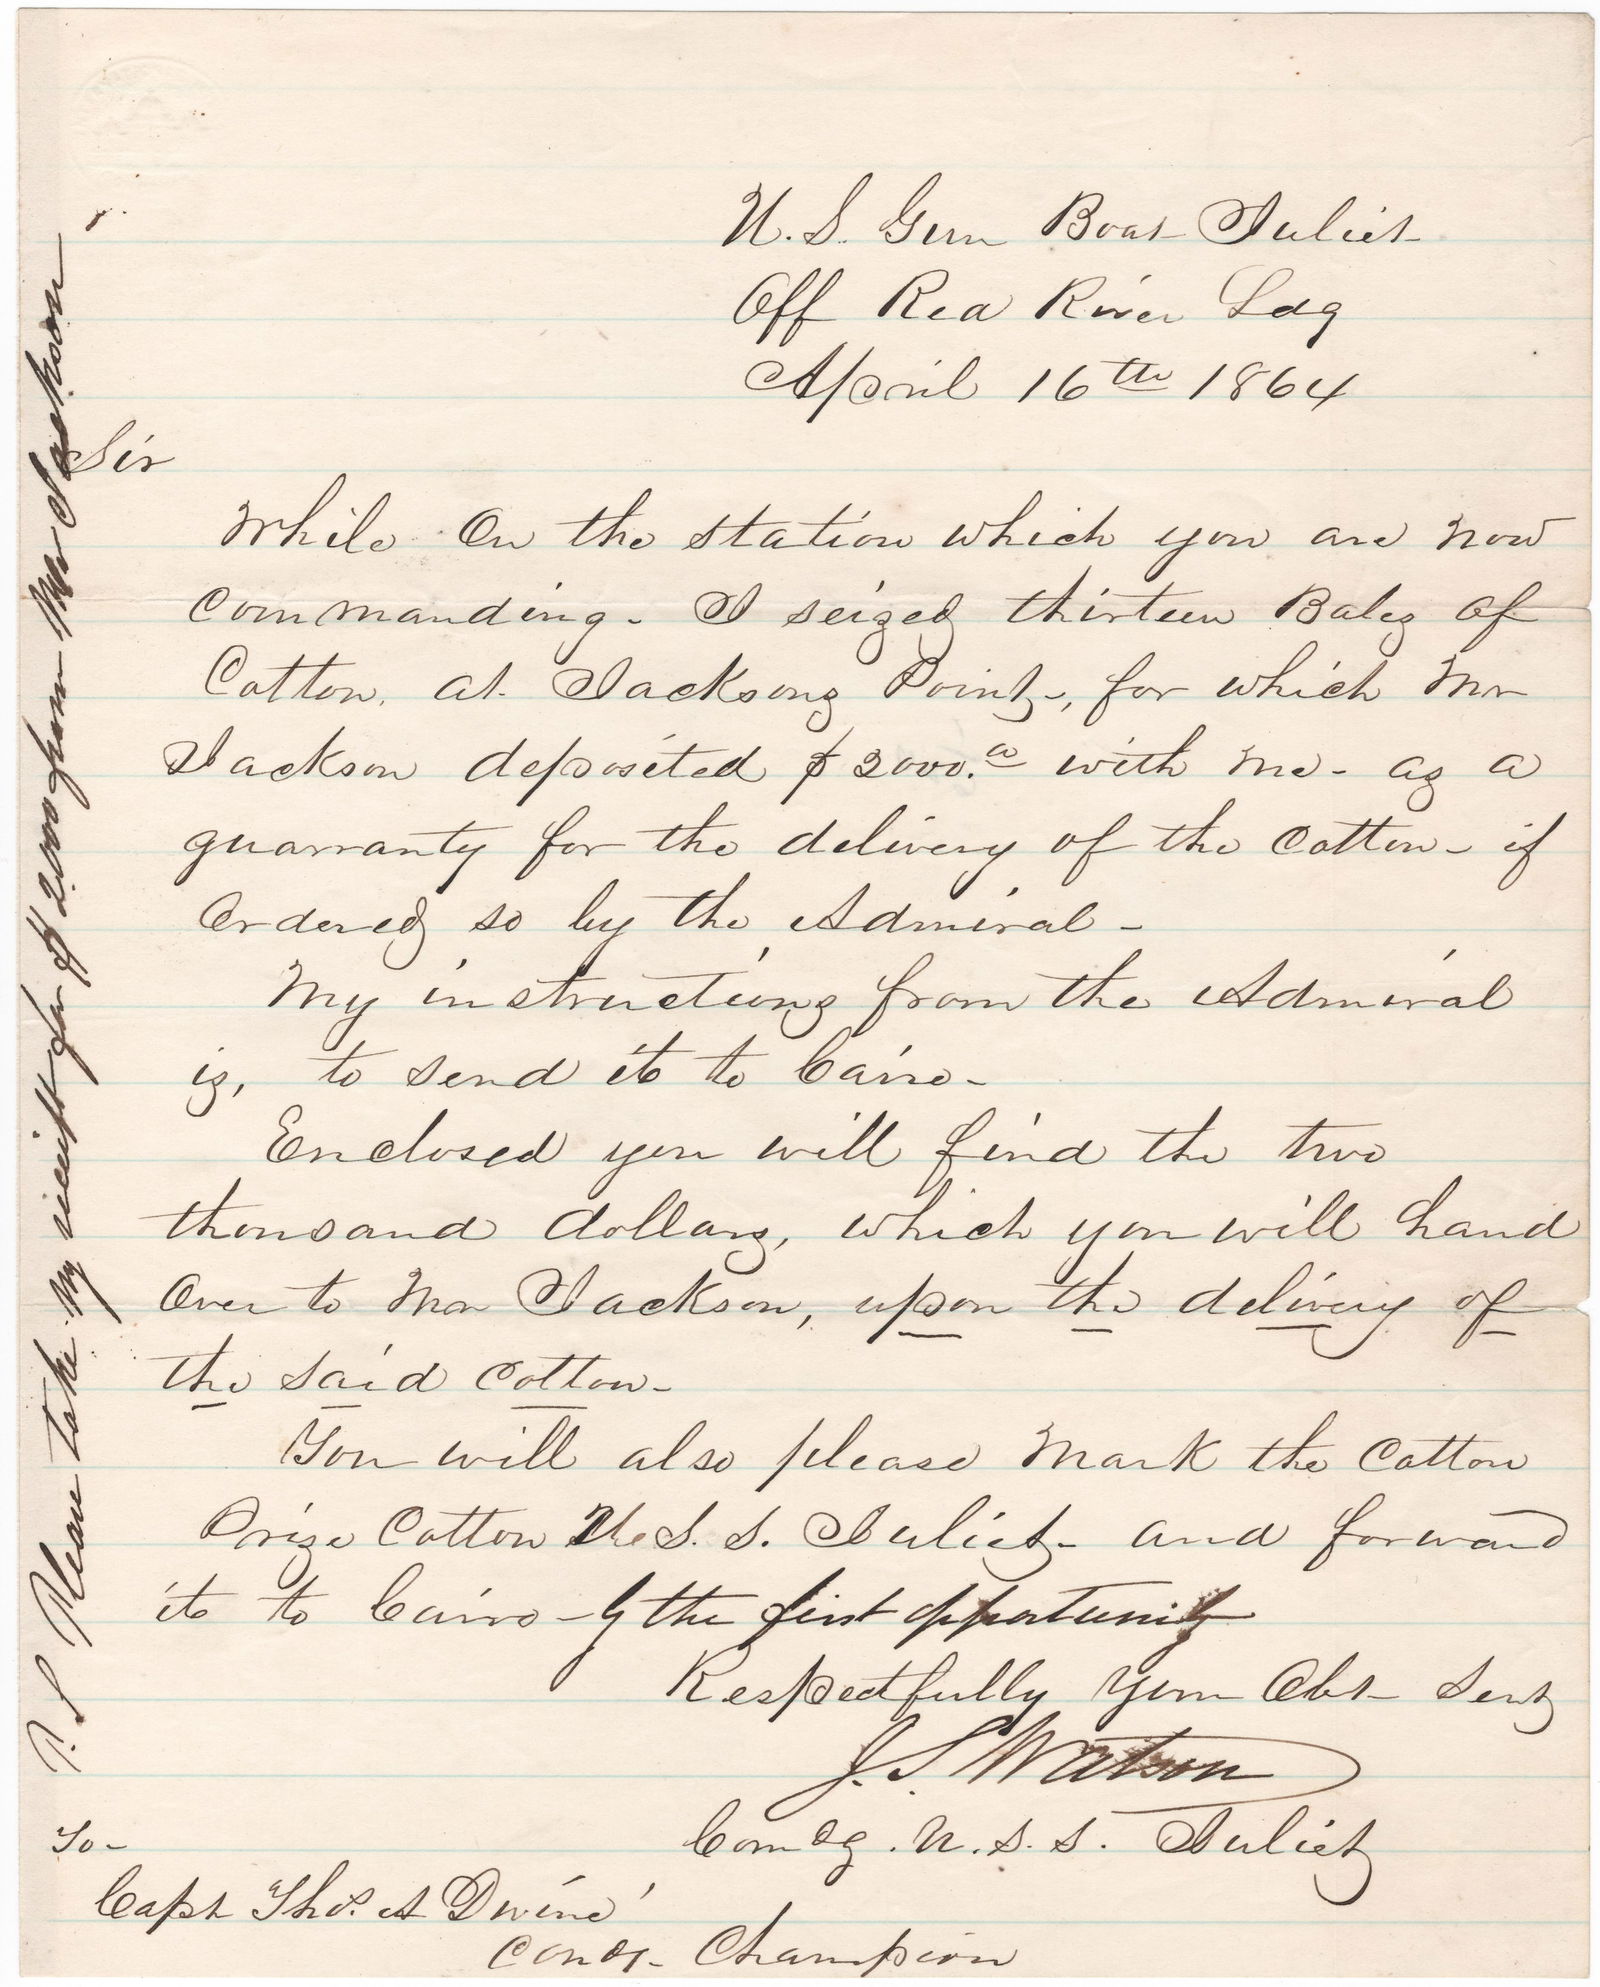 U. S. Gun Boat Juliet
Off Red River Ldg
April 16th 1864
Sir
While On the station which you are now
Commanding. I seized thirteen Bales of
Cotton, at Jacksons Point, for which Mr
Jackson deposited $2000.00 with me - as a
guarranty for the delivery of the Cotton - if
Ordered so by the Admiral -
My instructions from the Admiral
is, to send it to Cairo -
Enclosed you will find the two
thousand dollars, which you will hand
Over to Mr Jackson, upon the delivery of
the said cotton -
You will also please Mark the Cotton
Prize Cotton U. S. S. Juliet - and forward
it to Cairo - by the first opportunity
Respectfully Your Obt Sert
J. S. Watson
Comdg. U. S. S. Juliet
To -
Capt Thos. A Dwine
Comdg - Champion
P. S Please take my receipt for $2000 from Mr Jackson